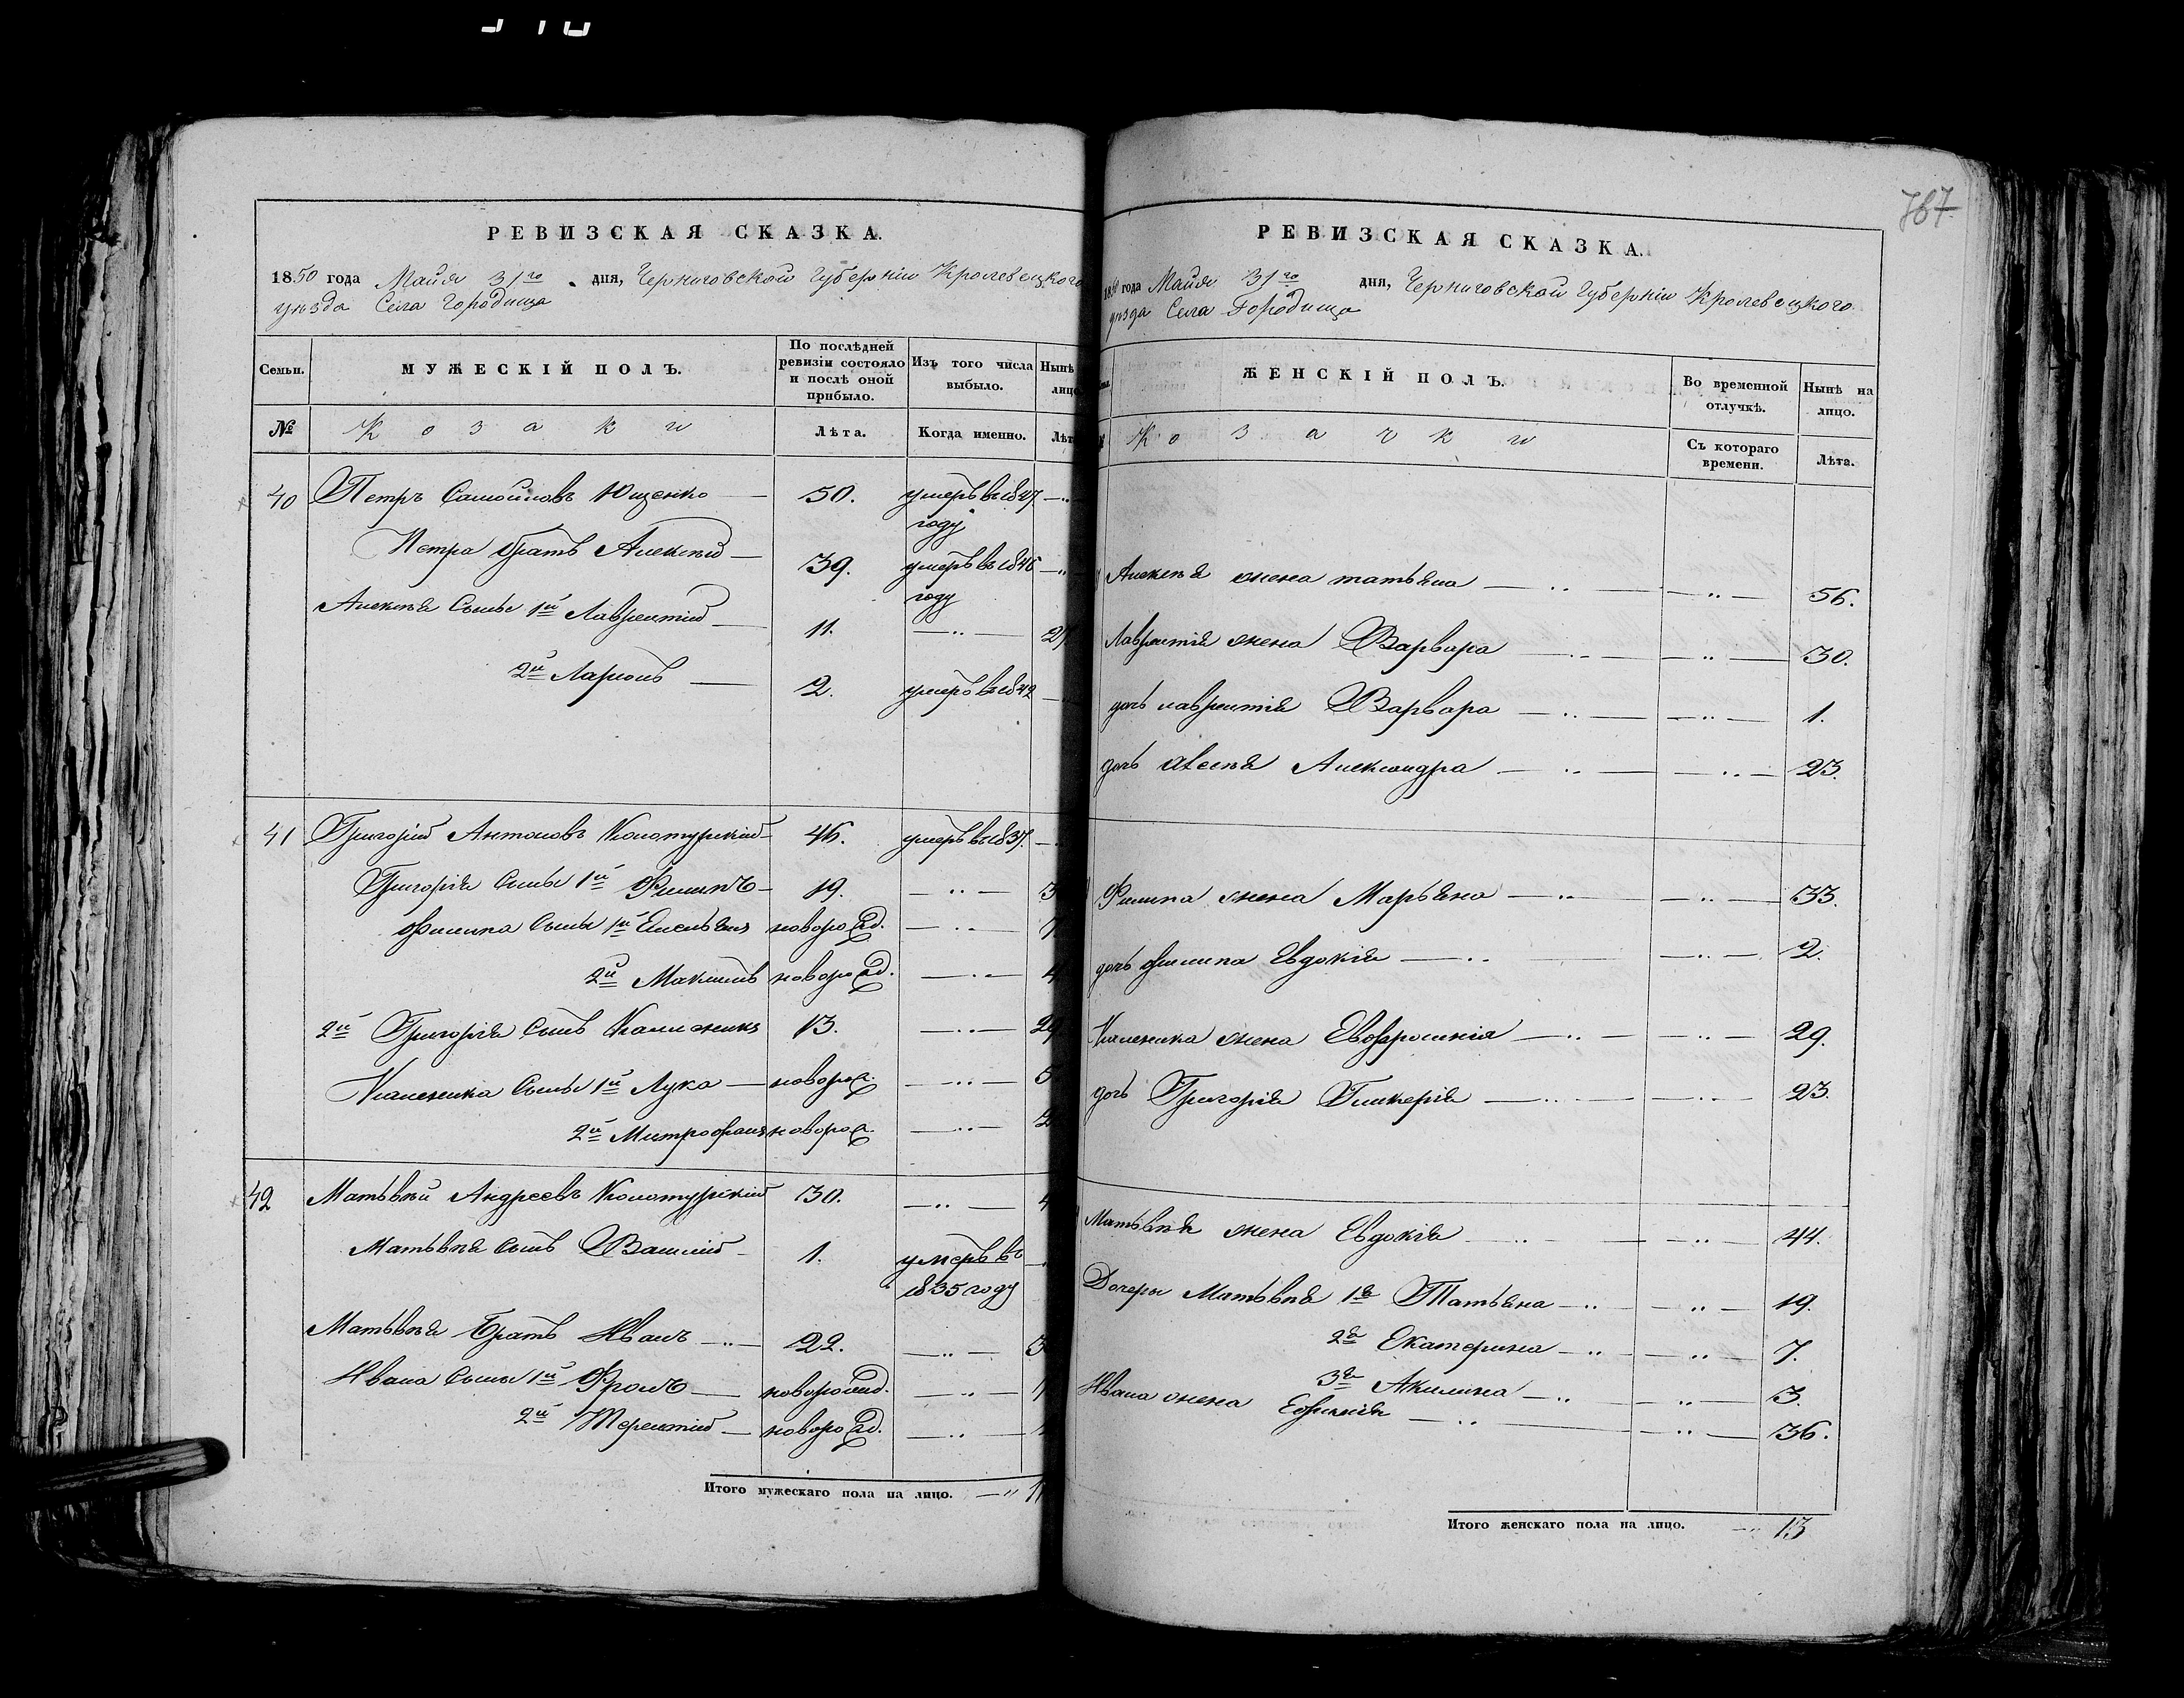 РЕВИЗСКАЯ СКАЗКА.
1850 года Майя 31го дня, Черниговской Губерніи Кролевецкого
уѣзда Села Городища
Семьи. МУЖЕСКІЙ ПОЛЪ. По послѣдней ревизіи состояло и послѣ оной прибыло. Изъ того числа выбыло. Нынѣ
№ Козаки Лѣта. Когда именно.
40 Петръ Самойловъ Ющенко — 50. умеръ въ 1847 году — „
Петра братъ Алексѣй — 39. умеръ въ 1846 году — „
Алексѣя Сыны 1й Лаврентій — 11. — „ —
2й Ларіонъ — 2. умеръ въ 1842
41 Григорій Антоновъ Колотурскій 46. умеръ въ 1837.
Григорія Сыны 1й Филипъ — 19. — „ —
Филипа Сыны 1й Емельянъ новорожд. — „ —
2й Максимъ новорожд. — „ —
2й Григорія Сынъ Калиникъ 13. — „ —
Калиника Сыны 1й Лука — новорож. — „ —
2й Митрофанъ новорож. — „ —
42 Матьвѣй Андреевъ Колотурскій 30. — „ —
Матьвѣя Сынъ Василій — 1. умеръ въ 1835 году
Матьвѣя Братъ Иванъ — „ — 22. — „ —
Ивана Сыны 1й Фролъ — новорожд. — „ —
2й Терентій — новорожд. — „ —
Итого мужескаго пола на лицо. — „
767
РЕВИЗСКАЯ СКАЗКА.
1850 года Майя 31го дня, Черниговской Губерніи Кролевецкого
уѣзда Села Городища
ЖЕНСКІЙ ПОЛЪ. Во временной отлучкѣ. Нынѣ на лицо.
Козачки Съ котораго времени. Лѣта.
Алексѣя жена татьяна — „ — — „ — 56.
Лаврентія жена Варвара — „ — — „ — 30.
дочь лаврентія Варвара — „ — — „ — 1.
дочь Алексѣя Александра — „ — — „ — 23.
Филипа жена Марьяна — „ — — „ — 33.
дочь филипа Евдокія — „ — „ — 2.
Калиника жена Евфросинія — „ — — „ — 29.
дочь Григорія Гликерія — „ — — „ — 23.
Матьвѣя жена Евдокія — „ — — „ — 44.
Дочеры Матьвѣя 1я Татьяна — „ — „ — 19.
2я Екатерина — „ — „ — 7.
3я Акилина — „ — „ — 3.
Ивана жена Ефимія — „ — — „ — 36.
Итого женскаго пола на лицо. — „ 13